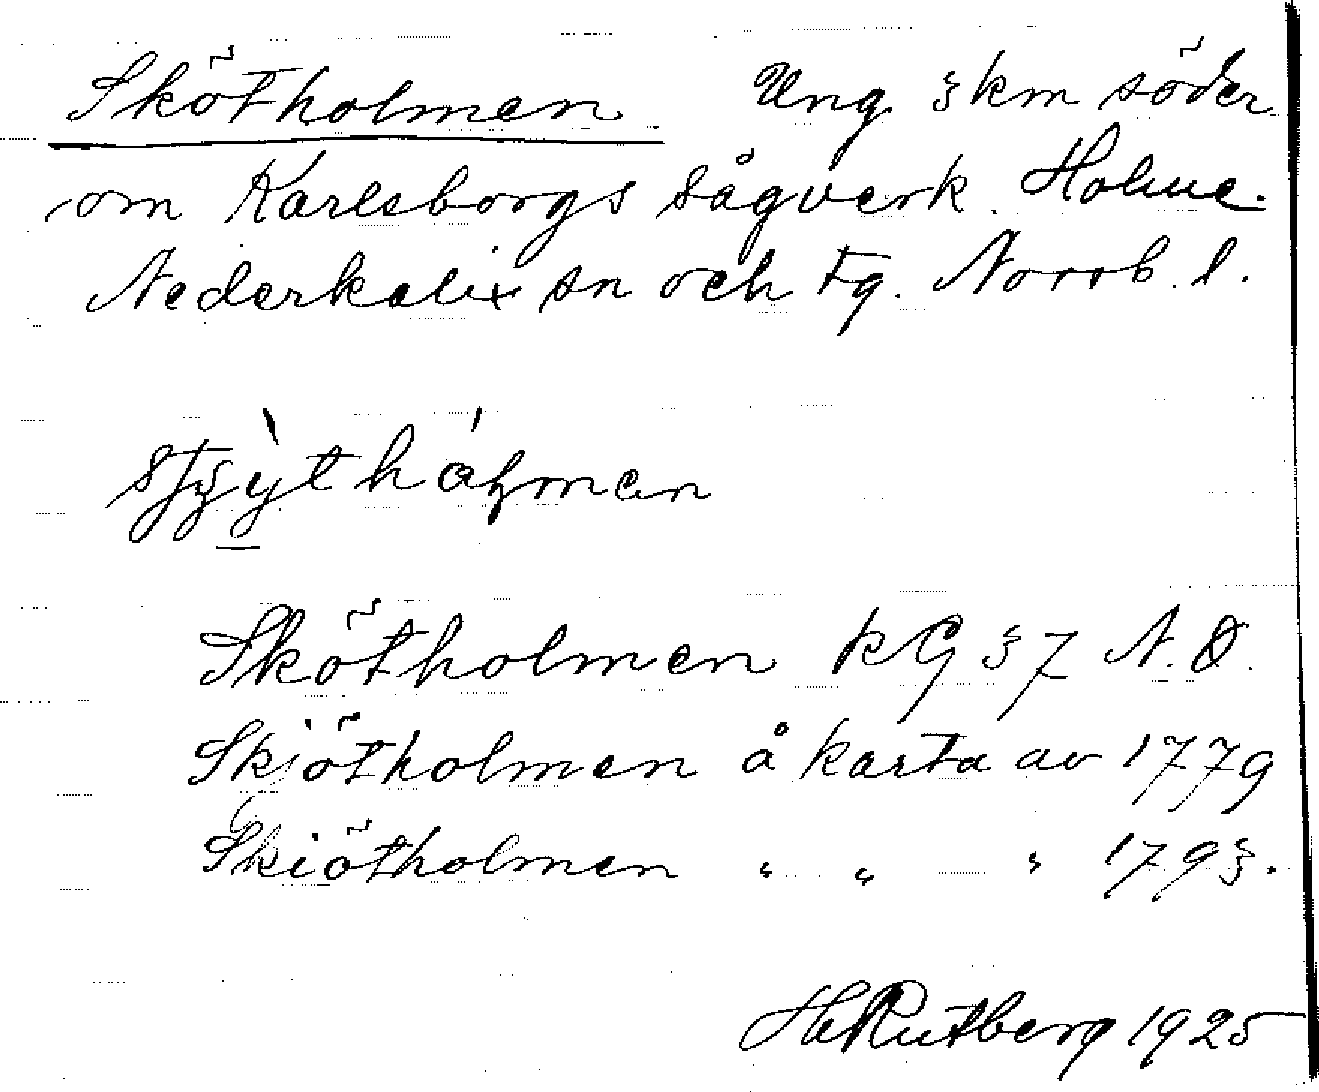 Skötholmen Ung. 3 km söder
om Karlsborgs sågverk. Holme.
Nederkalix sn och tg. Norrb. l.
Skötholmen KG 37 N.O.
Skjötholmen å karta av 1779
Skiötholmen " " " 1793.
H Rutberg 1925